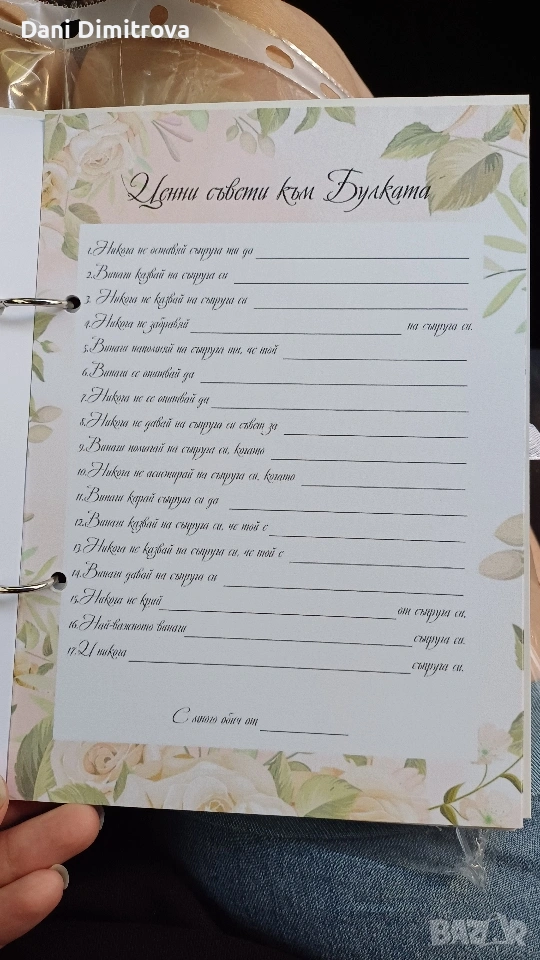 Dani Dimitrova
Ценни съвети към Булката
1. Никога не оставяй съпруга ти до
2. Винаги казвай на съпруга си
3. Никога не казвай на съпруга си
4. Никога не забравяй на съпруга си.
5. Винаги напомняй на съпруга ти, че той
6. Винаги се опитвай да
7. Никога не се опитвай да
8. Никога не давай на съпруга си съвет за
9. Винаги помагай на съпруга си, когато
10. Никога не асистирай на съпруга си, когато
11. Винаги карай съпруга си да
12. Винаги казвай на съпруга си, че той е
13. Никога не казвай на съпруга си, че той е
14. Винаги давай на съпруга си
15. Никога не крий от съпруга си.
16. Най-важното винаги съпруга си.
17. И никога съпруга си.
С много обич от
BAZAR